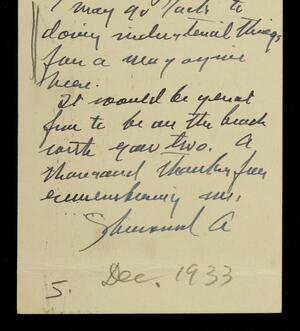 I may go back to
doing industrial things
for a magazine
here.
It would be great
fun to be on the beach
with you two. A
thousand thanks for
remembering me.
Sherwood A
5. Dec. 1933